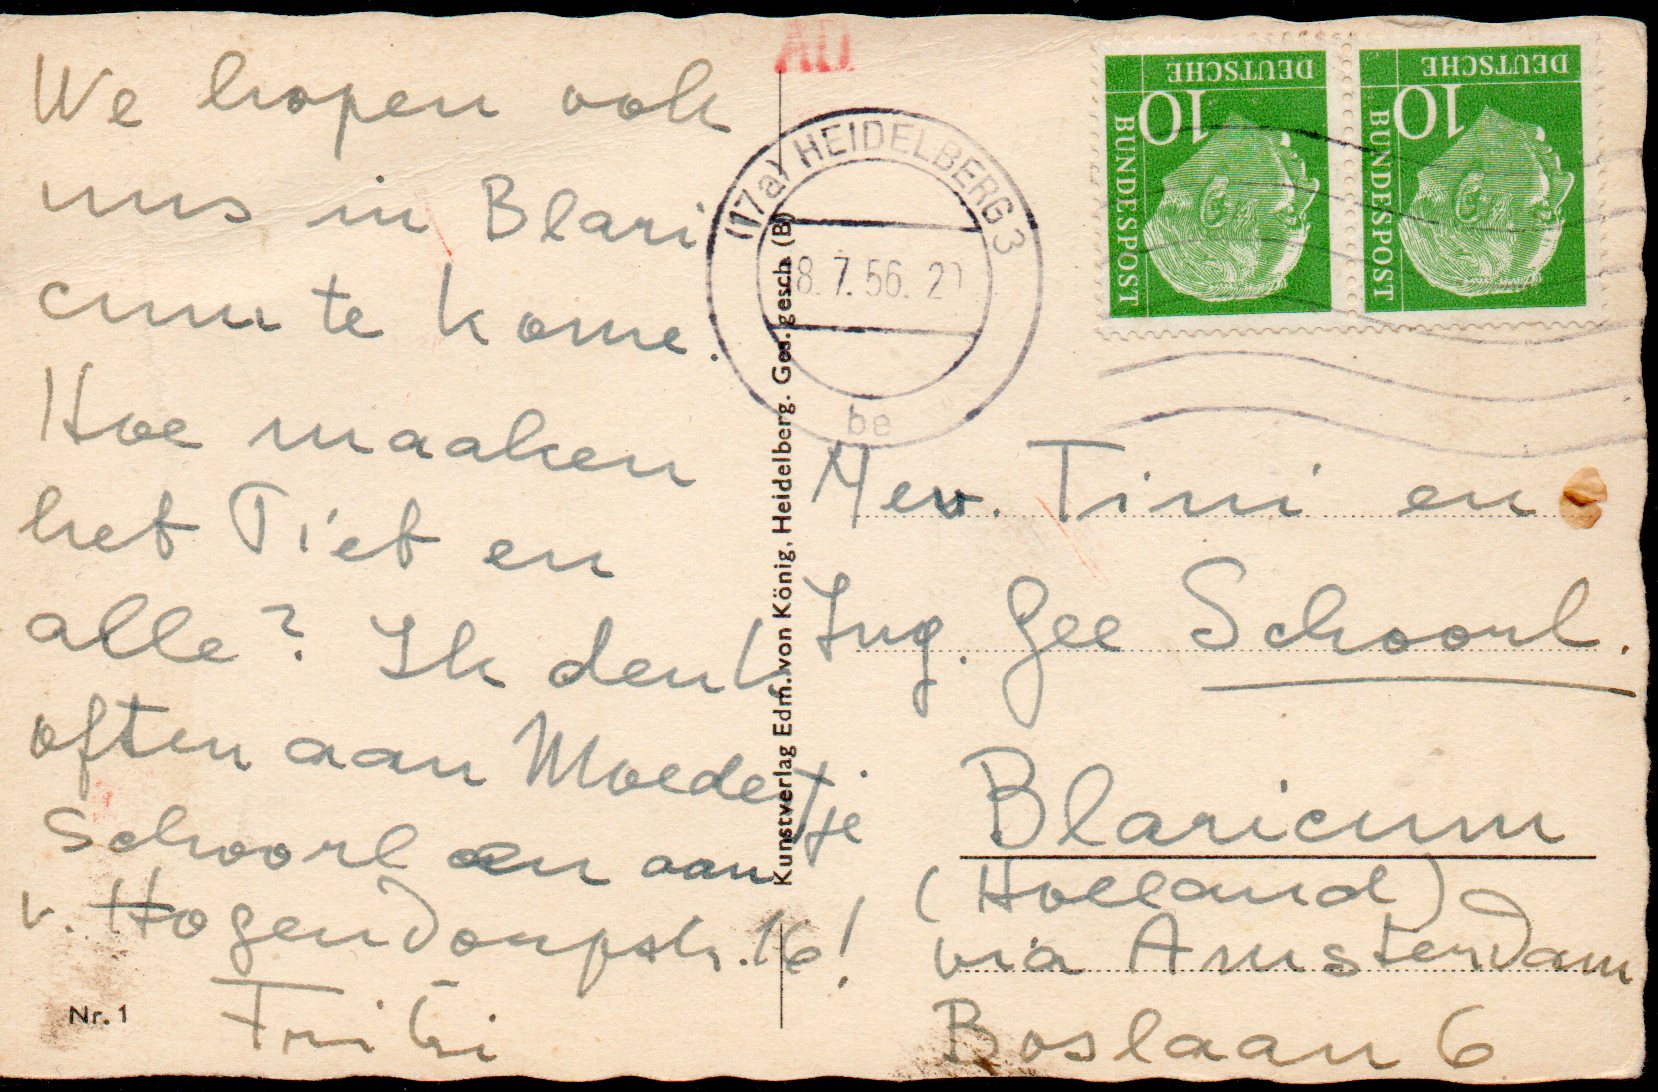 We hopen ook
uns in Blari
cum te kome.
Hoe maaken
het Piet en
alle? Ik denk
often aan Moedertje
Schoorl en aan
v. Hogendorpstr. 16!
Fritzi
Nr. 1
Kunstverlag Edm. von König, Heidelberg. Ges. gesch. (B)
(17a) HEIDELBERG 3
8.7.56.
be
DEUTSCHE
BUNDESPOST
10
DEUTSCHE
BUNDESPOST
10
Mew. Tini en
Ing. Gee Schoorl.
Blaricum
(Holland)
via Amsterdam
Boslaan 6